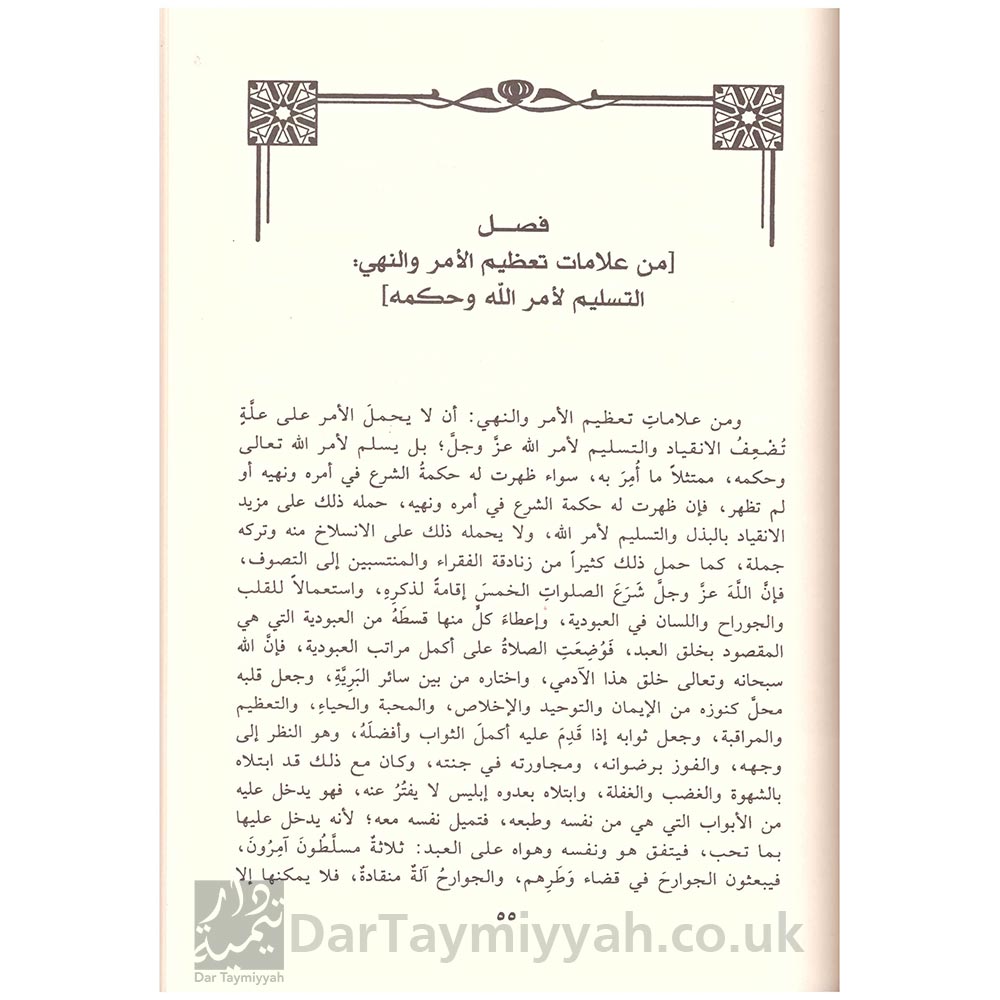 فصــل
[من علامات تعظيم الأمر والنهي:
التسليم لأمر الله وحكمه]
ومن علاماتِ تعظيم الأمر والنهي: أن لا يحملَ الأمر على علَّةٍ
تُضْعِفُ الانقياد والتسليم لأمر الله عزَّ وجلَّ؛ بل يسلم لأمر الله تعالى
وحكمه، ممتثلاً ما أُمِرَ به، سواء ظهرت له حكمةُ الشرع في أمره ونهيه أو
لم تظهر، فإن ظهرت له حكمة الشرع في أمره ونهيه، حمله ذلك على مزيد
الانقياد بالبذل والتسليم لأمر الله، ولا يحمله ذلك على الانسلاخ منه وتركه
جملة، كما حمل ذلك كثيراً من زنادقة الفقراء والمنتسبين إلى التصوف،
فإنَّ اللَّهَ عزَّ وجلَّ شَرَعَ الصلواتِ الخمسَ إقامةً لذكرِهِ، واستعمالاً للقلب
والجوراح واللسان في العبودية، وإعطاءَ كلٍّ منها قسطَهُ من العبودية التي هي
المقصود بخلق العبد، فَوُضِعَتِ الصلاةُ على أكمل مراتب العبودية، فإنَّ الله
سبحانه وتعالى خلق هذا الآدمي، واختاره من بين سائر البَرِيَّةِ، وجعل قلبه
محلَّ كنوزه من الإيمان والتوحيد والإخلاص، والمحبة والحياءِ، والتعظيم
والمراقبة، وجعل ثوابه إذا قَدِمَ عليه أكملَ الثواب وأفضلَهُ، وهو النظر إلى
وجهه، والفوز برضوانه، ومجاورته في جنته، وكان مع ذلك قد ابتلاه
بالشهوة والغضب والغفلة، وابتلاه بعدوه إبليس لا يفتُرُ عنه، فهو يدخل عليه
من الأبواب التي هي من نفسه وطبعه، فتميل نفسه معه؛ لأنه يدخل عليها
بما تحب، فيتفق هو ونفسه وهواه على العبد: ثلاثةٌ مسلَّطُونَ آمِرُونَ،
فيبعثون الجوارحَ في قضاء وَطَرِهم، والجوارحُ آلةٌ منقادةٌ، فلا يمكنها إلا
٥٥
دار تيمية
Dar Taymiyyah
DarTaymiyyah.co.uk